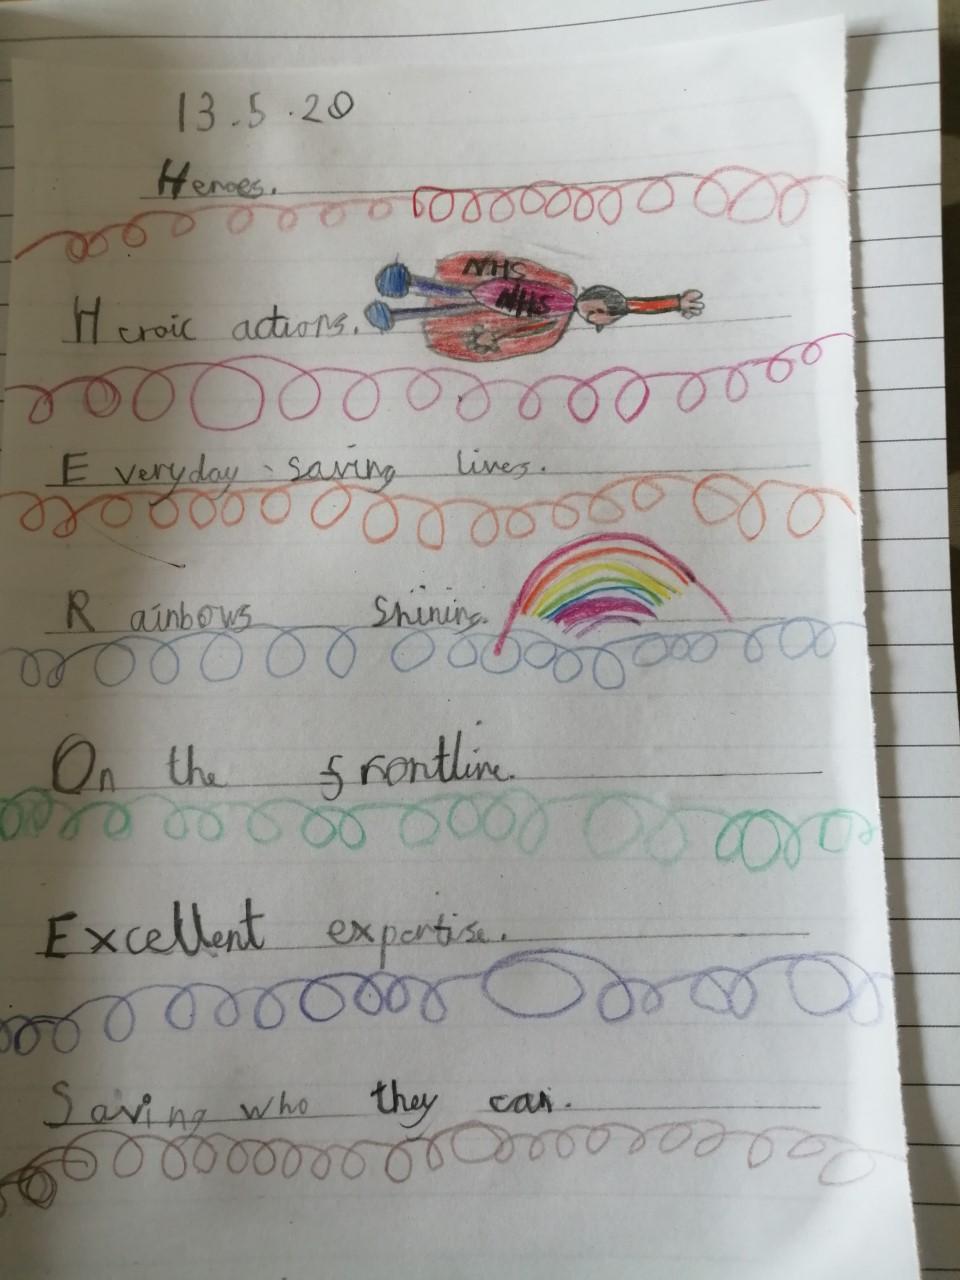 13.5.20
Heroes.
NHS
NHS
Heroic actions.
Everyday saving lives.
Rainbows Shining.
On the frontline.
Excellent expertise.
Saving who they can.